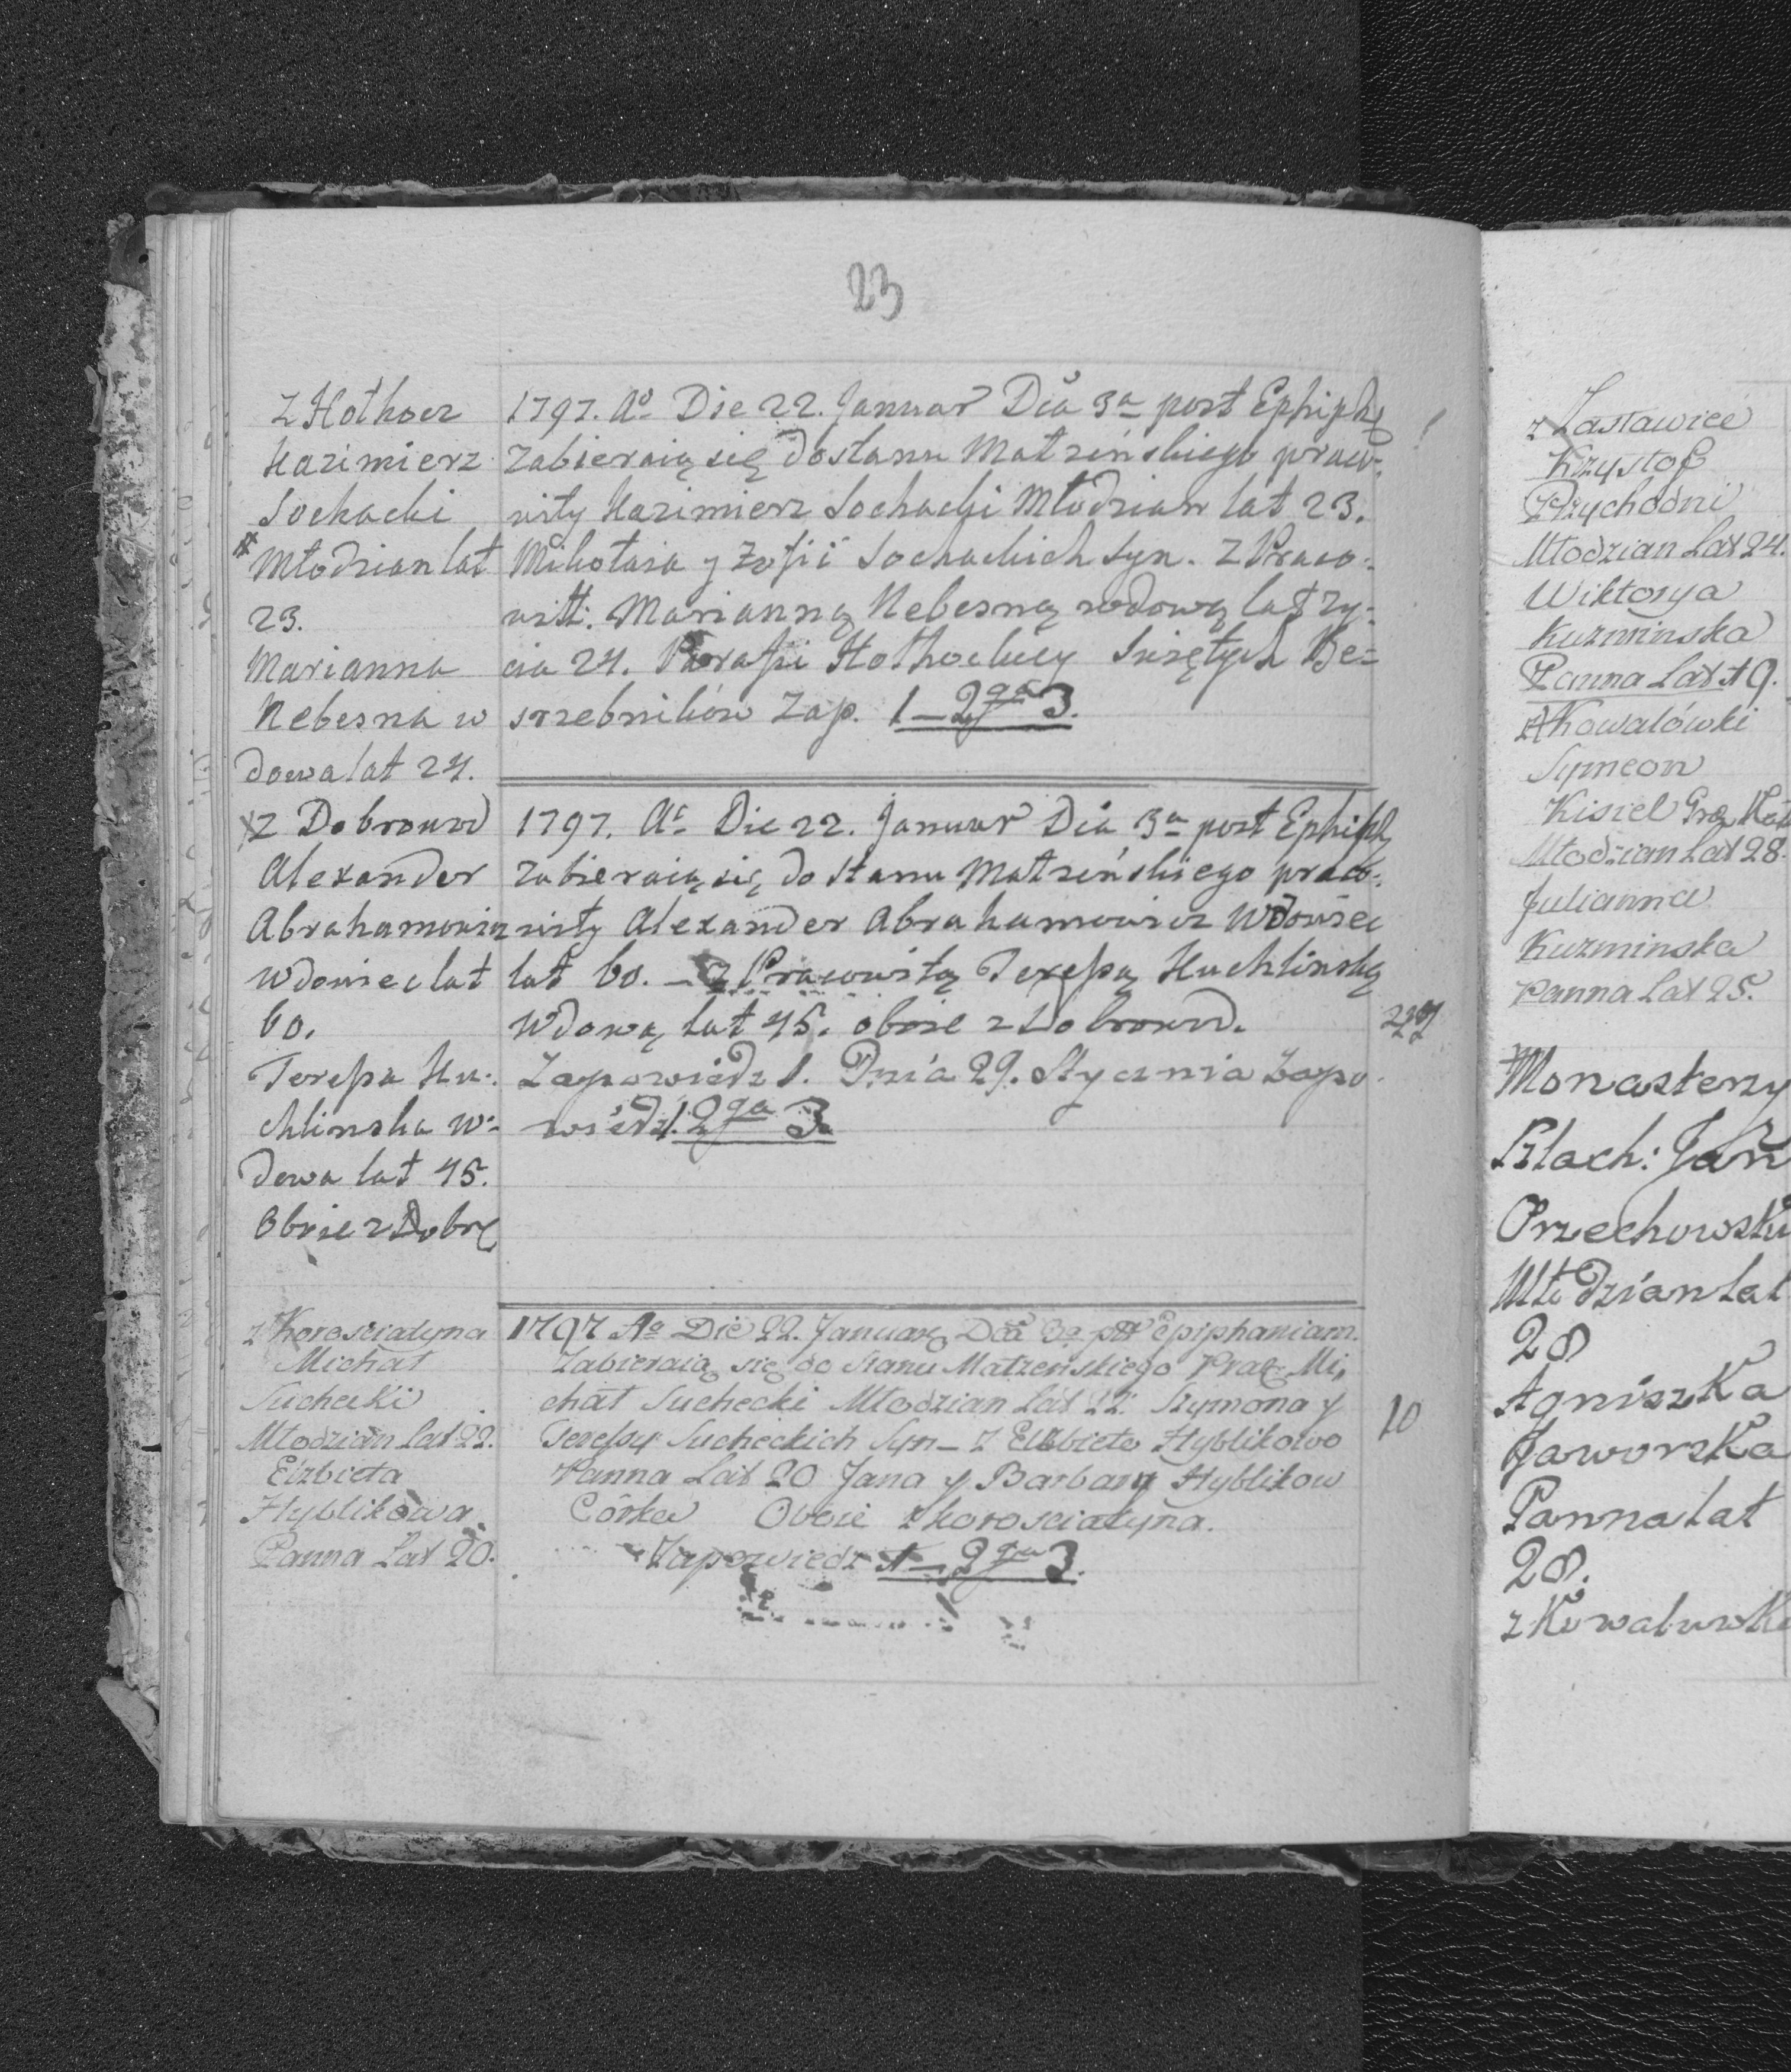 23
z Hołhocz
Kazimierz
Sochacki
Młodzian lat
23.
Marianna
Nebesna w
dowa lat 24.
1797. Ao Die 22. Januar Dca 3a post Ephiph
Zabieraią się do stanu Małzeńskiego praco-
wity Kazimierz Sochacki Młodzian lat 23.
Mikołaia y Zofii Sochackich syn. Z Praco-
witt: Marianną Nebesną wdową lat ży-
cia 24. Parafii Hołhockiey Swiętych Be-
srzebników Zap. 1 – 2ga 3.
z Dobrowod
Alexander
Abrahamowicz
Wdowiec lat
60.
Teressa Hu-
chlinska w-
dowa lat 45.
Oboie z Dobr
1797. Ao Die 22. Januar Dca 3a post Ephiph
zabieraią się do stanu Małzeńskiego praco-
wity Alexander Abrahamowicz Wdowiec
lat 60. – z Pracowitą Teressą Huchlinską
Wdową lat 45. oboie z Dobrowod.
Zapowiedz 1. Dnia 29. Stycznia Zapo
wiedz 1. 2ga 3
z Korosciatyna
Michał
Suchecki
Młodzian Lat 22.
Elzbieta
Hyblikowa
Panna Lat 20.
1797 Ao Die 22. January Dca 3a ptt Epiphaniam.
Zabieraią się do Stanu Małzeńskiego Prac. Mi,
chał Suchecki Młodzian Lat 22. Szymona y
Teressy Sucheckich Syn – z Elzbieta Hyblikowo
Panna Lat 20 Jana y Barbary Hyblikow
Córka Oboie z Korosciatyna.
Zapowiedz 1 – 2ga 3.
10
z Zastawiec
Krzystof
Przychodni
Młodzian Lat 24.
Wiktorya
Kuzminska
Panna Lat 19.
z Kowalówki
Symeon
Kisiel
Młodzian Lat 28.
Julianna
Kuzminska
Panna Lat 25.
Monasterzy
Szlach: Jan
Orzechowski
Młodzian lat
28
Agniszka
Jaworska
Panna lat
28.
z Kowaluwki